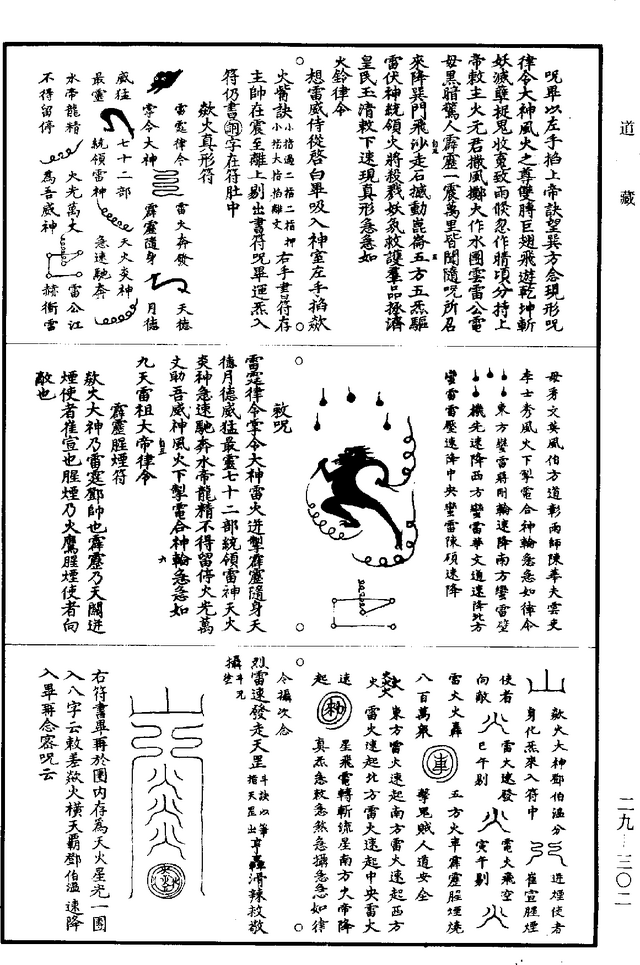 道藏
二九—三〇二
咒畢以左手掐上帝訣望巽方念現形咒
律令大神風火之尊雙膊巨翅飛遊乾坤斬
妖滅孽捉鬼收冤致雨倏忽作晴頃分持上
帝敕主火无君撒風擲火作水團雲雷公電
母黑暗驚人霹靂一震萬里皆聞隨咒所召
來降巽門飛沙走石撼動崑崙五方五炁驅
雷伏神統領火將殺戮妖氛救護羣品拯濟
皇民玉清敕下速現真形急急如
火鈴律令
想雷威侍從啓白畢吸入神室左手掐欻
火觜訣小指過二指二指押小指大指掐離文右手書符存
主帥在震至離上剔出書符咒畢運炁入
符仍書字在符肚中
欻火真形符
雷霆律令
雷火奔發
天德
掌令大神
霹靂隨身
月德
威猛
七十二部
天火炎神
最靈
統領雷神
急速馳奔
水帝龍精
火光萬丈
雷公江
不得留停
為吾威神
赫衝雷
母秀文英風伯方道彰雨師陳華夫雲吏
李士秀風火下掣電合神輪急急如律令
東方蠻雷將刑輪速降南方蠻雷壁
機先速降西方蠻雷華文通速降北方
蠻雷雷壓速降中央蠻雷陳碩速降
敕咒
雷霆律令掌令大神雷火迸掣霹靂隨身天
德月德威猛最靈七十二部統領雷神天火
炎神急速馳奔水帝龍精不得留停火光萬
丈助吾威神風火下掣電合神輪急急如
九天雷祖大帝律令
霹靂腥煙符
欻火大神乃雷霆鄧帥也霹靂乃天闢迸
煙使者崔宣也腥煙乃火鷹腥煙使者向
敵也
欻火大神鄧伯溫分
身化炁來入符中
迸煙使者
崔宣腥煙
使者
雷火速發
電火飛空
向敵
巳午剔
寅午剔
雷火火轟
五方火車霹靂腥煙燒
八百萬衆
擊鬼賊人道安全
東方雷火速起南方雷火速起西方
雷火速起北方雷火速起中央雷火
速
星飛電轉斬流星南方火帝降
起
真炁急敕急煞急攝急急如律
令攝次念
烈雷速發走天罡斗訣以筆指天罡出亨轟滑辣敕敬
攝
右符書畢再於圈內存為天火星光一團
入八字云敕差欻火橫天霸鄧伯溫速降
入畢再念密咒云